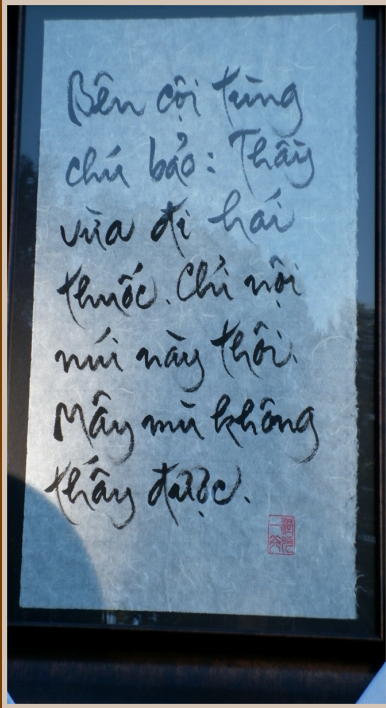 Bên cội tùng
chú bảo: Thầy
vừa đi hái
thuốc. Chỉ nội
núi này thôi.
Mây mù không
thấy được.